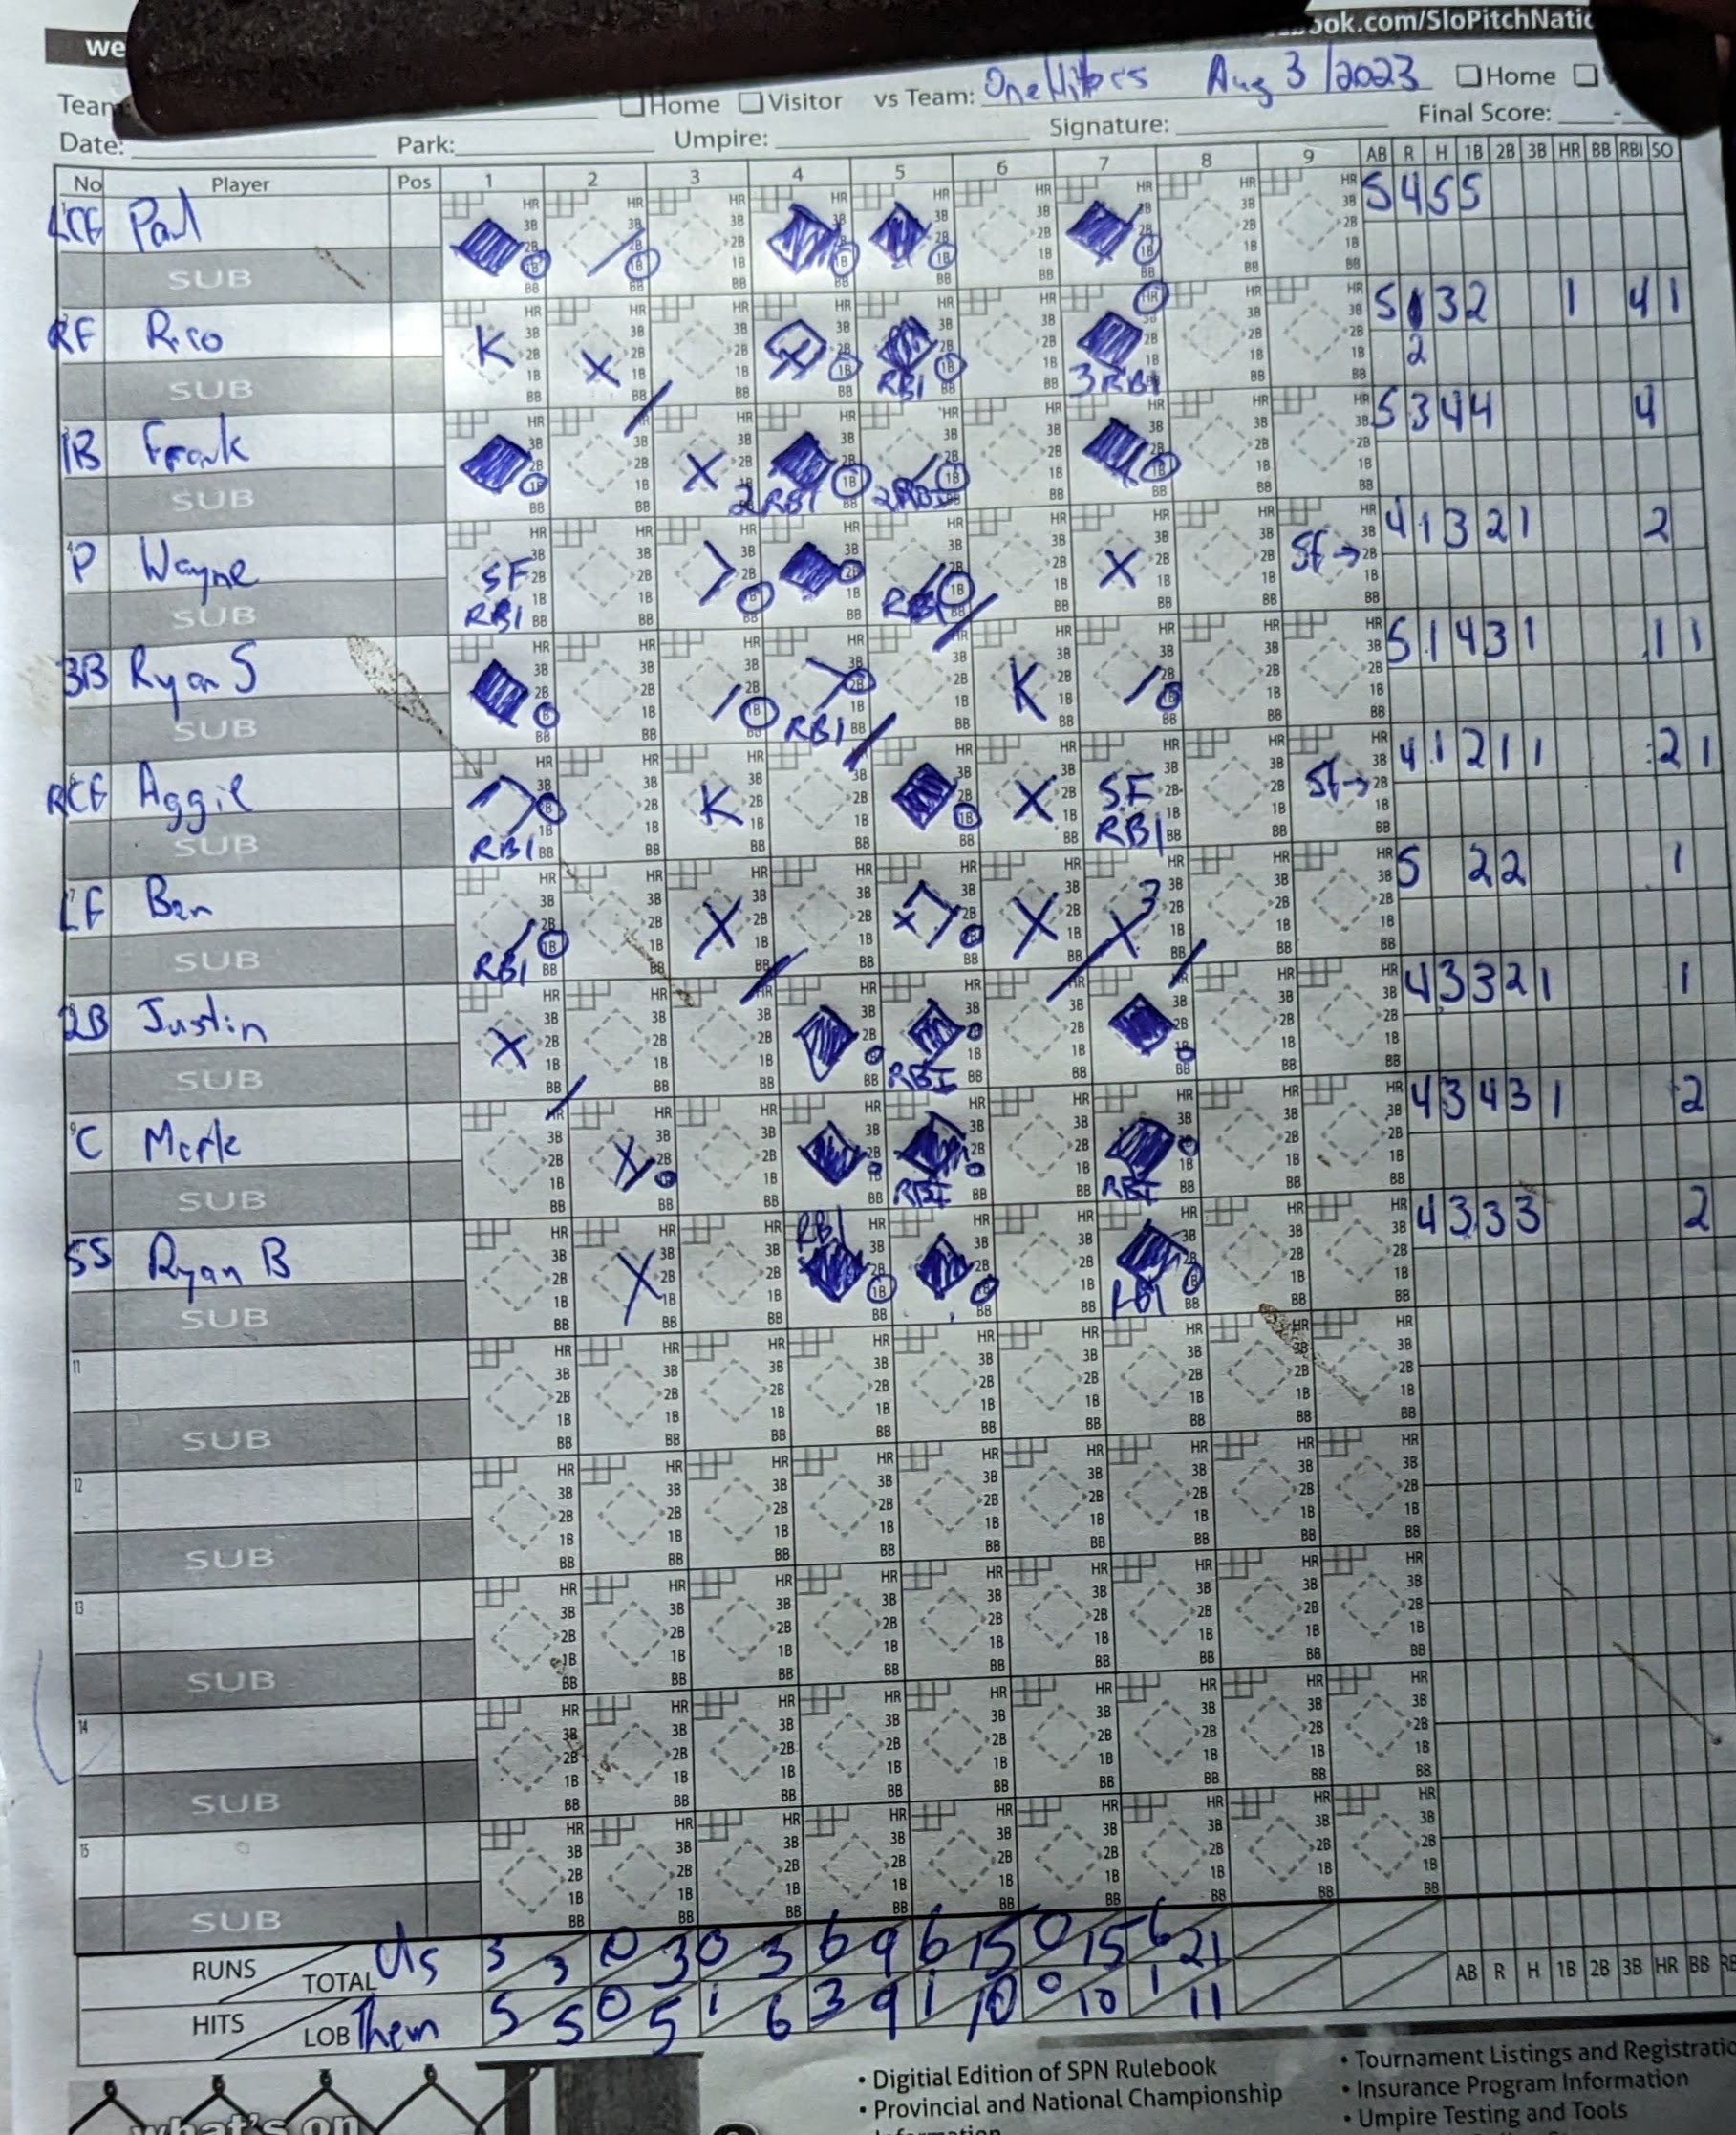 we ook.com/SloPitchNatio
Team: Home Visitor vs Team: OneHitters Aug 3/2023 Home
Date: Park: Umpire: Signature: Final Score: -
No Player Pos 1 2 3 4 5 6 7 8 9 AB R H 1B 2B 3B HR BB RBI SO
LCF Paul 5 4 5 5
SUB
RF Rico K X X RBI 3 RBI 5 3 2 1 4 1
2
SUB
1B Frank X 2 RBI 2 RBI 5 3 4 4 4
SUB
P Wayne SF RBI RBI X SF → 4 1 3 2 1 2
SUB
3B Ryan S RBI K 5 1 4 3 1 1 1
SUB
RCF Aggie RBI K X SF RBI SF → 4 1 2 1 1 2 1
SUB
LF Ben RBI X X X X 3 5 2 2 1
SUB
2B Justin X RBI 4 3 3 2 1 1
SUB
C Mark X RBI RBI 4 3 4 3 1 2
SUB
SS Ryan B X RBI RBI 4 3 3 3 2
SUB
11
SUB
12
SUB
13
SUB
14
SUB
15
SUB
RUNS TOTAL Us 3 3 0 3 0 3 6 9 6 15 0 15 6 21
AB R H 1B 2B 3B HR BB RB
HITS LOB Them 5 5 0 5 1 6 3 9 1 10 0 10 1 11
what's on
• Digitial Edition of SPN Rulebook
• Provincial and National Championship
Information
• Tournament Listings and Registratio
• Insurance Program Information
• Umpire Testing and Tools